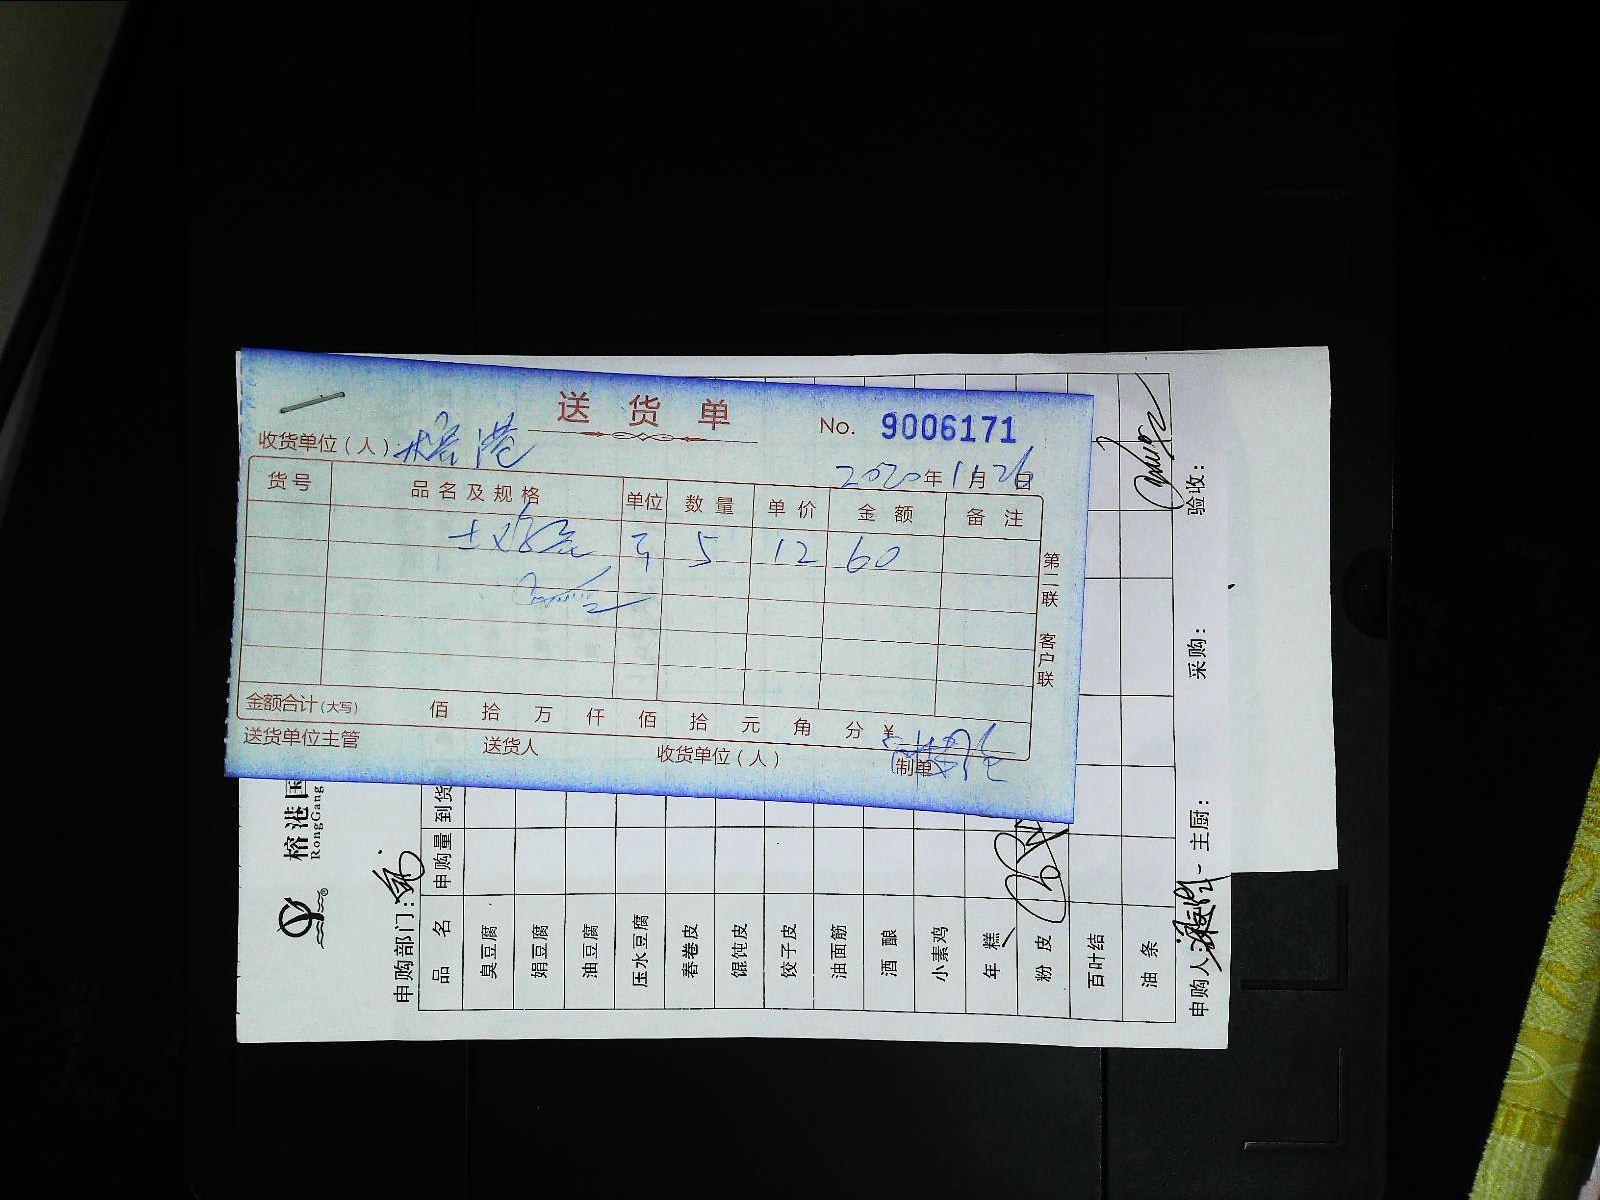 送 货 单
No. 9006171
收货单位（人） 榕港
2020年1月26日
货号 品名及规格 单位 数量 单价 金额 备注
5 12 60
第二联 客户联
金额合计（大写） 佰 拾 万 仟 佰 拾 元 角 分 ¥
送货单位主管 送货人 收货单位（人） 制单
榕港国
RongGang
申购部门：
品 名 申购量 到货
臭豆腐
娟豆腐
油豆腐
压水豆腐
春卷皮
馄饨皮
饺子皮
油面筋
酒 酿
小素鸡
年 糕
粉 皮
百叶结
油 条
申购人： 主厨： 采购： 验收：